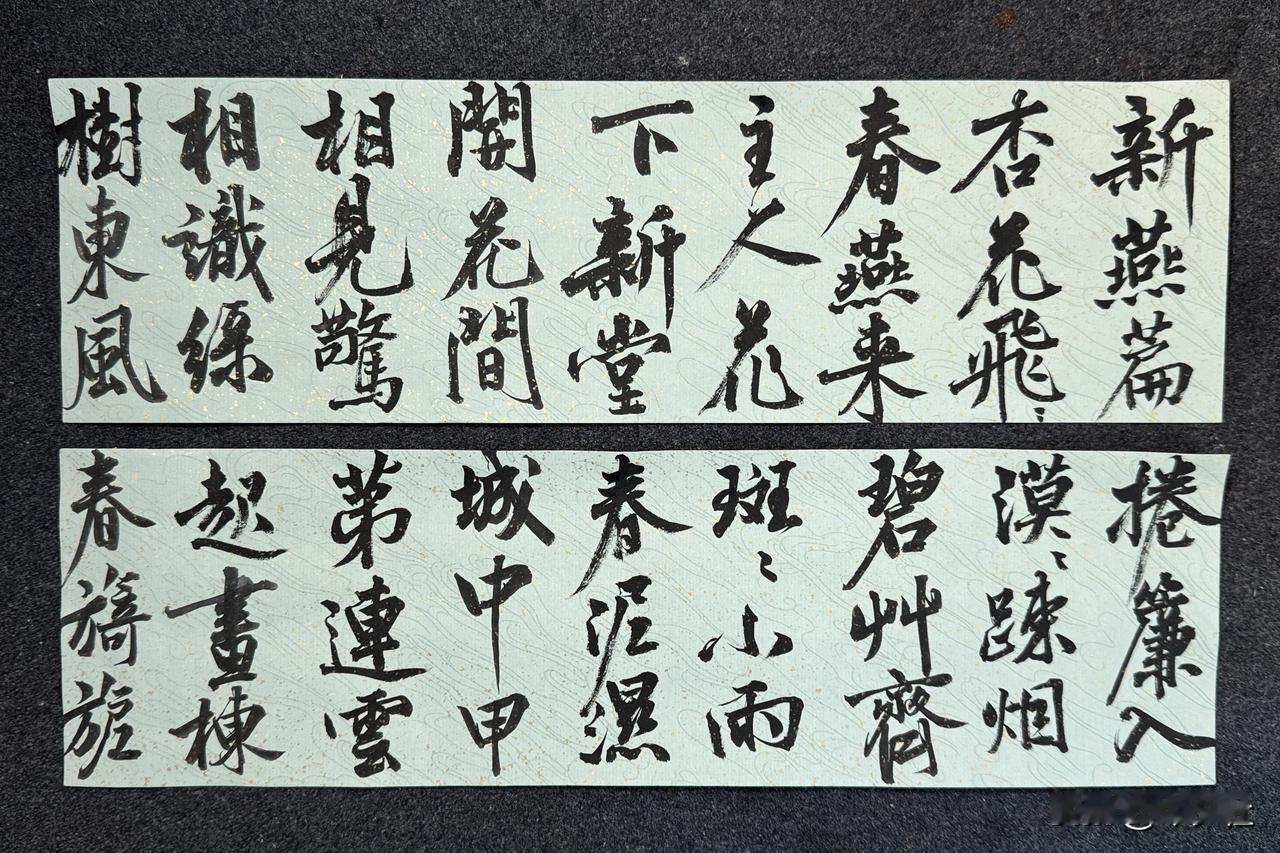 新燕篇
杏花飛〻
春燕來
主人花
下新堂
開花間
相見驚
相識綠
樹東風
捲簾入
漠〻踈烟
碧艸齊
斑〻小雨
春泥濕
城中甲
第連雲
起畫棟
春旖旎